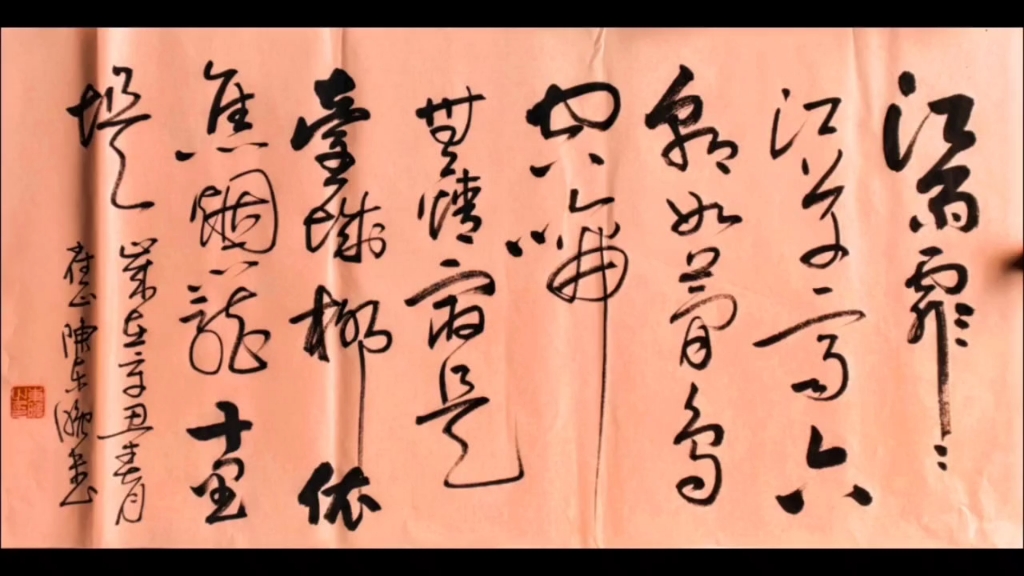 江雨霏霏
江草齊六
朝如夢鳥
空啼
無情最是
臺城柳依
舊烟籠十里
堤
歲在辛丑春月
陳東書